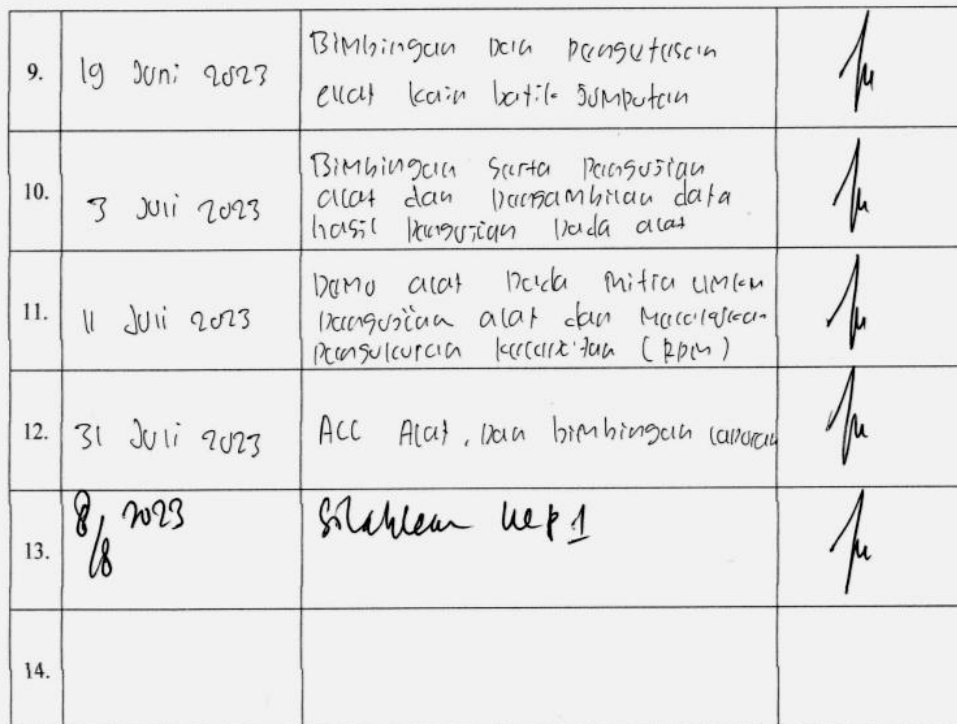 9. 19 Juni 2023
Bimbingan Dan Pengetesan
alat kain batik Jumputan
10. 3 Juli 2023
Bimbingan Serta Pengujian
alat dan Pengambilan data
hasil Pengujian Pada alat
11. 11 Juli 2023
Demo alat Pada Mitra UMKM
Pengujian alat dan Melakukan
Pengukuran kecepatan (RPM)
12. 31 Juli 2023
ACC Alat, Dan bimbingan laporan
13. 8/8 2023
Silahkan 1
14.